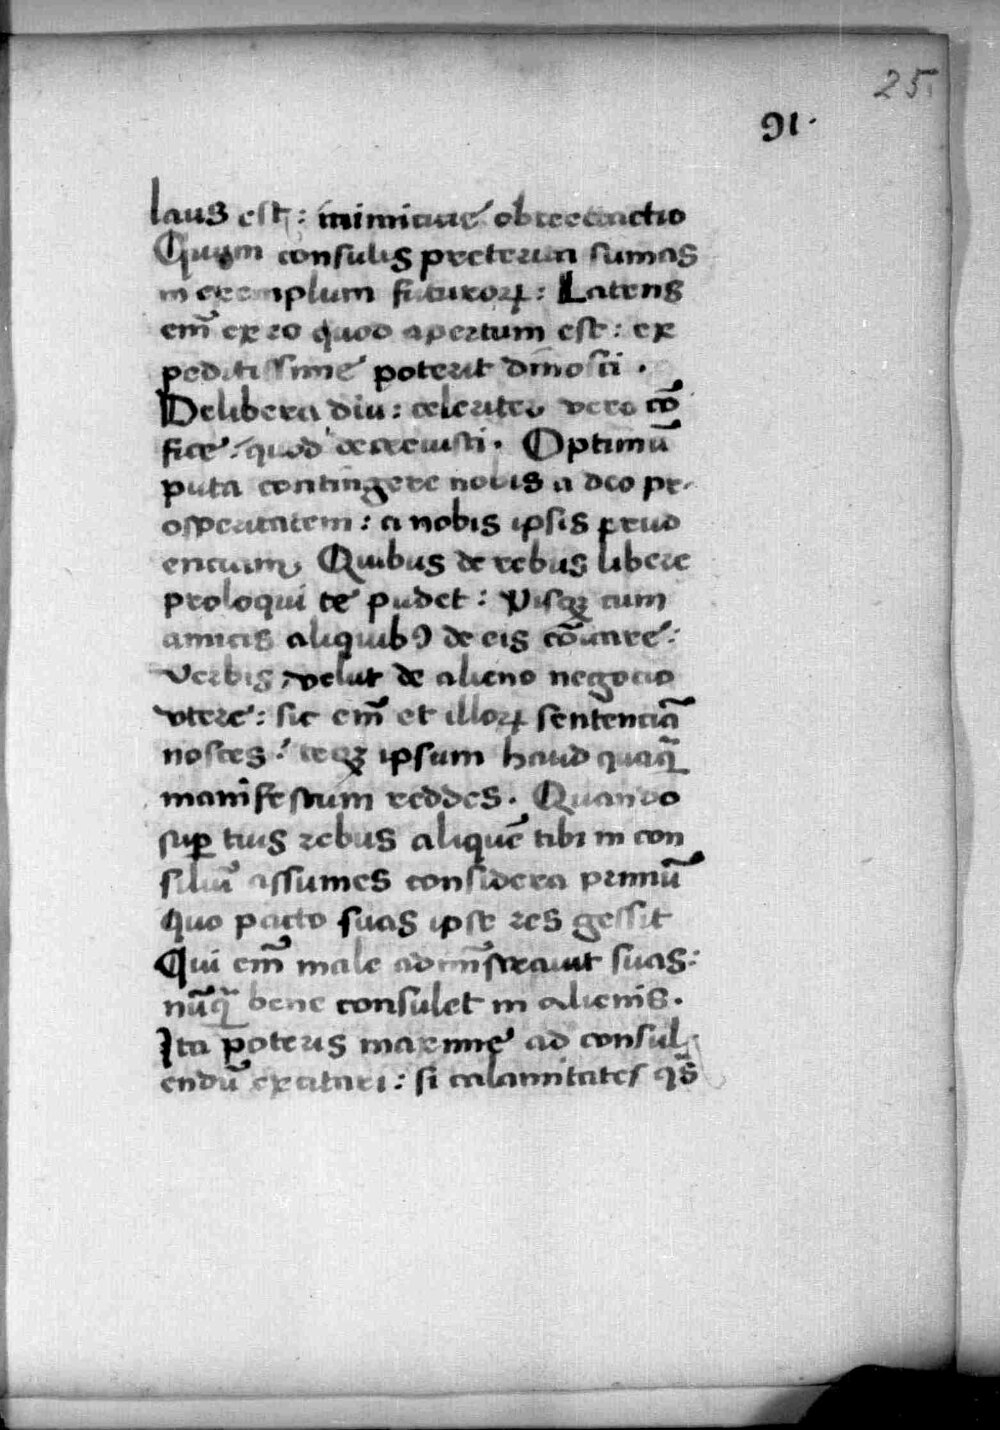 25
91.
laus est : inimicitie obtrectactio
Quum consulis preterita sumas
in exemplum futurorꝝ : Latens
em̄ ex eo quod apertum est : ex
peditissime poterit dinosci .
Delibera diu : celeriter vero cō
fice : quod decrevisti . Optimū
puta contingere nobis a deo pr-
osperitatem : a nobis ipsis prud
entiam Quibus de rebus libere
proloqui te pudet : Visqꝫ cum
amicis aliquibꝯ de eis cōicare :
verbis velut de alieno negocio
vtere : sic em̄ et illorꝝ sentenciā
nosces : teqꝫ ipsum haud quaq̄
manifestum reddes . Quando
suꝑ tuis rebus aliquē tibi in con
siliū assumes considera primū
quo pacto suas ipse res gessit
Qui em̄ male adm̄stravit suas :
nūq̄ bene consulet in alienis .
Ita poteris maxime ad consul
endū excitari : si calamitates q̄s